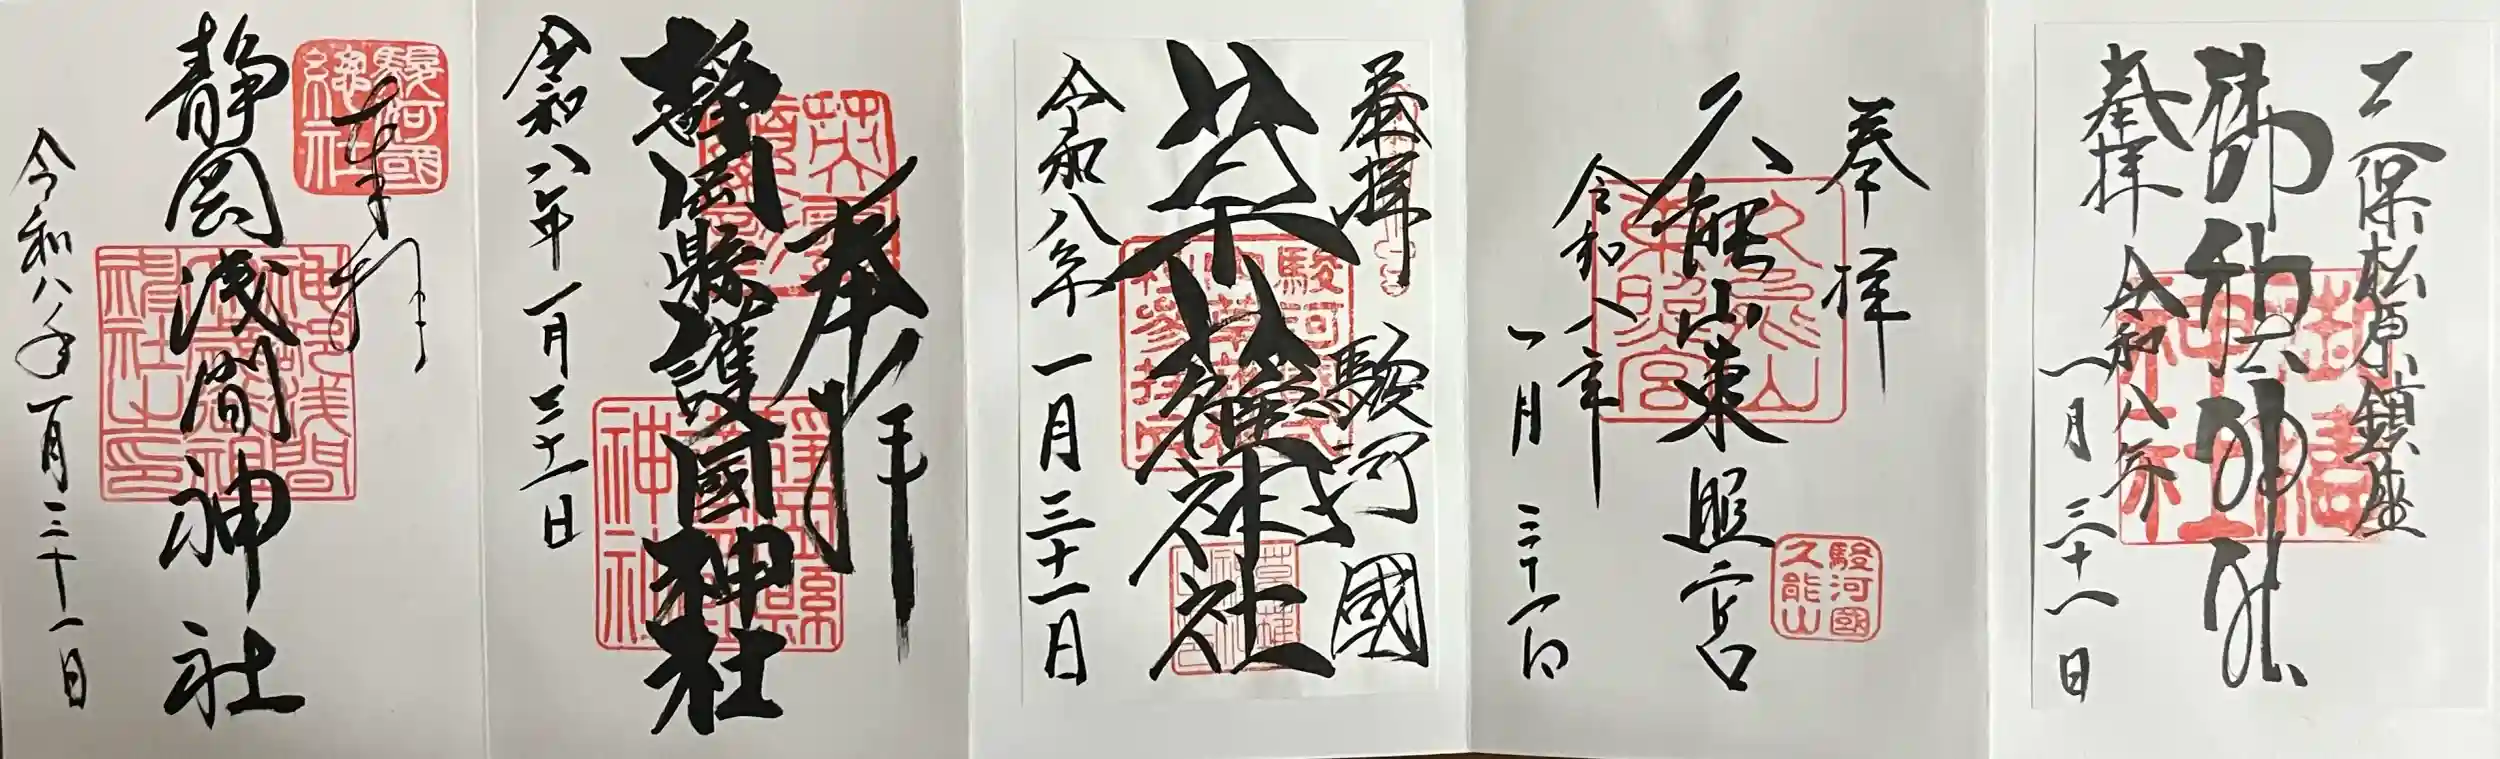 三保松原鎮座
御穂神社
奉拝
令和八年
一月三十一日
奉拝
久能山東照宮
久能山東照宮
駿河國
久能山
令和八年
一月三十一日
奉拝 駿河國
草薙神社
令和八年一月三十一日
奉拝
靜岡縣護國神社
靜岡縣護國神社
令和八年一月三十一日
奉拝
駿河國
總社
静岡浅間神社
令和八年一月三十一日